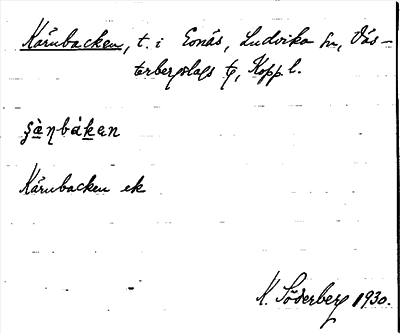 Kärnbacken, t. i Gonäs, Ludvika sn, Väs-
terbergslags tg, Kopp. l.
Kärnbacken ek
K. Söderberg 1930.